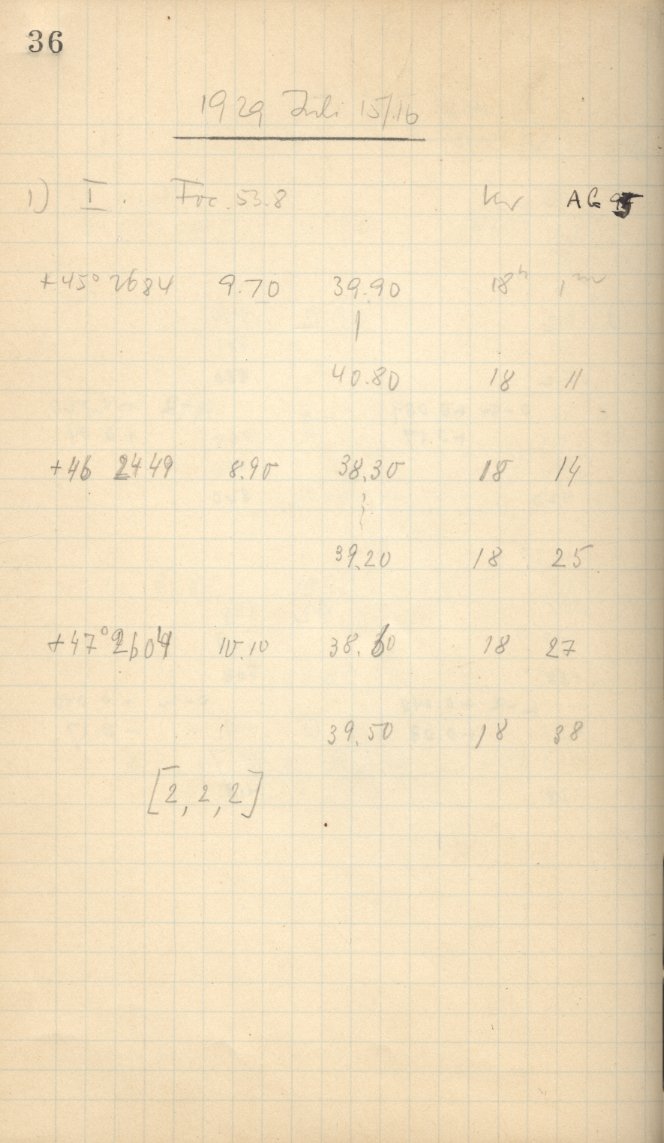 36
1929 Juli 15/16
1) I. Foc. 53.8 Kw AG
+45° 2684 9.70 39.90 18h 1m
|
40.80 18 11
+46 2449 8.90 38.30 18 14
39.20 18 25
+47° 2604 10.10 38.60 18 27
39.50 18 38
[2, 2, 2]